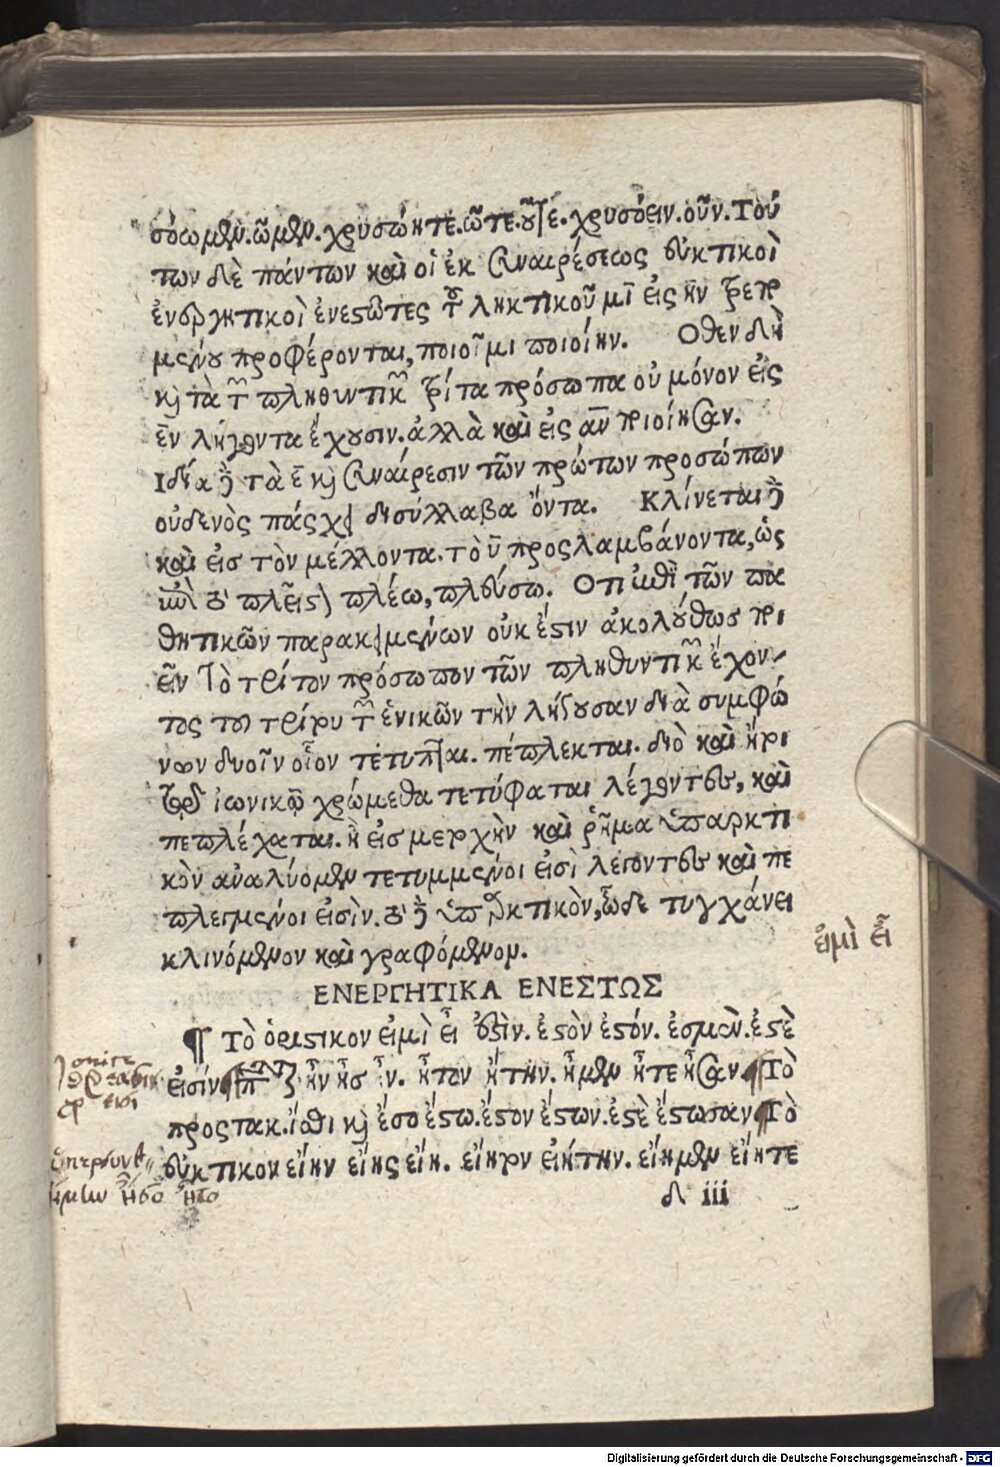 σόωμεν. ὦμεν. χρυσώητε. ῶτε. χρυσόειν. οῦν. Τού
των δὲ πάντων καὶ οἱ ἐκ συναιρέσεως εὐκτικοὶ
ἐνεργητικοὶ ἐνεστῶτες ληκτικοῦ μῑ εἰς ην
μένου προφέρονται, ποιοῖμι ποιοίην. Οθεν δὴ
καὶ τὰ τῶν πληθυντικῶν τρίτα πρόσωπα οὐ μόνον εἰς
εν λήγοντα ἔχουσιν. ἀλλὰ καὶ εἰς αν ποιοίησαν.
Ιδία δὲ τὰ συναίρεσιν τῶν πρώτων προσώπων
οὐδενὸς πάσχει δισύλλαβα ὄντα. Κλίνεται δὲ
καὶ εἰσ τὸν μέλλοντα. τὸ ῡ προσλαμβάνοντα, ὡς
πλέω, πλεύσω. Οτι τῶν πα
θητικῶν παρακειμένων οὐκ ἔστιν ἀκολούθωσ
εῖν Τὸ τρίτον πρόσωπον τῶν πληθυντικῶν ἔχον
τος του τρίτου τῶν ἑνικῶν τὴν λήγουσαν διὰ συμφώ
νων δυοῖν οἷον τέτυπται. πέπλεκται. διὸ καὶ ἤτοι
ἰωνικῶς χρώμεθα τετύφαται λέγοντες, καὶ
πεπλέχαται. ἢ εἰσ μετοχὴν καὶ ῥῆμα ὑπαρκτι
κὸν ἀναλύομεν τετυμμένοι εἰσὶ λέγοντες καὶ πε
πλεγμένοι εἰσὶν. τὸ δὲ ὑπαρκτικὸν, ὧδε τυγχάνει
κλινόμενον καὶ γραφόμενον.
ἐιμὶ εἶ
ΕΝΕΡΓΗΤΙΚΑ ΕΝΕΣΤΩΣ
¶ Τὸ ὁριστικον εἰμὶ εἶ ἐστὶν. ἐστὸν ἐστόν. ἐσμὲν. ἐστὲ
εἰσίν ἦν ἦσ ἦν. ἦτον ἤτην. ἦμεν ἦτε ἦσαν ¶ Τὸ
προστακ. ἴσθι καὶ ἔσο ἔστω. ἔστον ἔστων. ἐστὲ ἔστωσαν ¶ Τὸ
εὐκτικον εἴην εἴης εἴη. εἴητον εἰήτην. εἴημεν εἴητε
δ iii
Digitalisierung gefördert durch die Deutsche Forschungsgemeinschaft - DFG